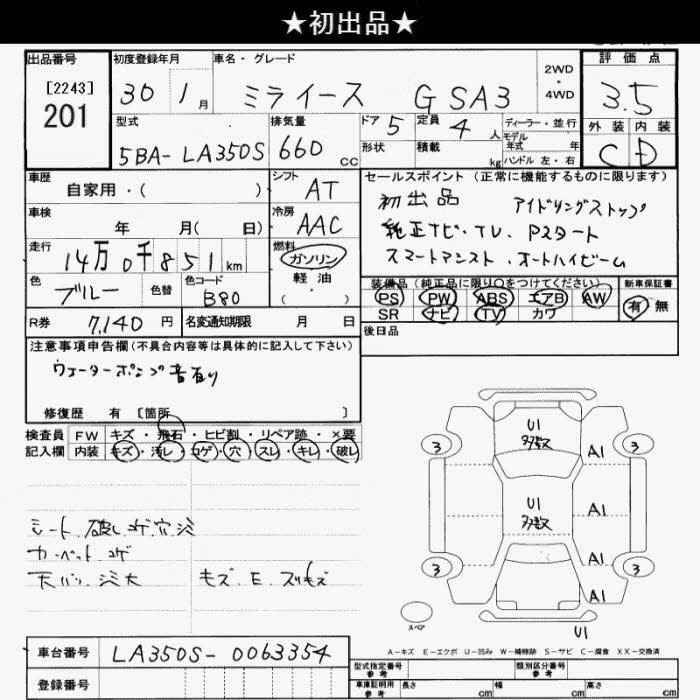 ★初出品★
出品番号
[2243]
201
初度登録年月
30 1月
車名・グレード
ミライース G SA3
2WD
・
4WD
評価点
3.5
型式
5BA-LA350S
排気量
660 cc
ドア 5
定員 4 人
形状
積載 kg
ディーラー・並行
モデル年式 年
ハンドル 左・右
外装 内装
C D
車歴
自家用・( )
シフト
AT
車検
年 月( 日)
冷房
AAC
走行
14万0千851km
燃料
ガソリン
軽油
( )
色
ブルー
色替
色コード
B80
R券 7,140円
名変通知期限 月 日
セールスポイント(正常に機能するものに限ります)
初出品 アイドリングストップ
純正ナビ・TV、Pスタート
スマートアシスト、オートハイビーム
装備品(純正品に限り○をつけてください)
PS PW ABS エアB AW
SR ナビ TV カワ
新車保証書
有 無
後日品
注意事項申告欄(不具合内容等は具体的に記入して下さい)
ウォーターポンプ音有り
修復歴 有 [箇所 ]
検査員 FW キズ・飛石・ヒビ割・リペア跡・×要
記入欄 内装 キズ・汚レ・コゲ・穴・スレ・キレ・破レ
シート 破レ コゲ 穴 シミ
カーペット コゲ
天バリ シミ大 キズ、E、スリキズ
U1
多数
U1
多数
A1
A1
A1
A1
3
3
3
3
スペア
U1
A-キズ E-エクボ U-凹み W-補修跡 S-サビ C-腐食 XX-交換済
車台番号 LA350S-0063354
登録番号
型式指定番号
参考
類別区分番号
参考
車庫証明用
参考
長さ cm
幅 cm
高さ cm